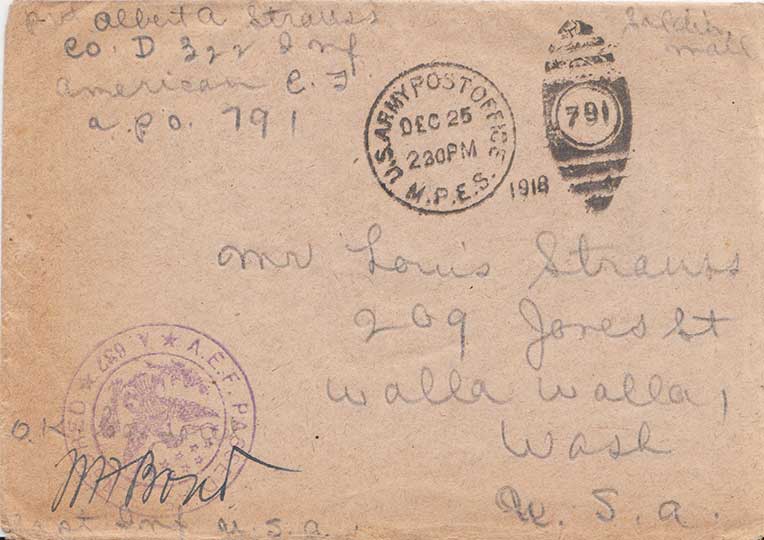 Pvt Albert A Strauss
Co. D 322 Inf
American E. F.
a.p.o. 791
Soldiers
mail
U.S. ARMY POST OFFICE
DEC 25
230PM
M.P.E.S.
1918
791
Mr Louis Strauss
209 Jones St
Walla Walla,
Wash
U. S. a.
A.E.F. PASSED
A. 637
O.K.
Capt Inf U.S.a.